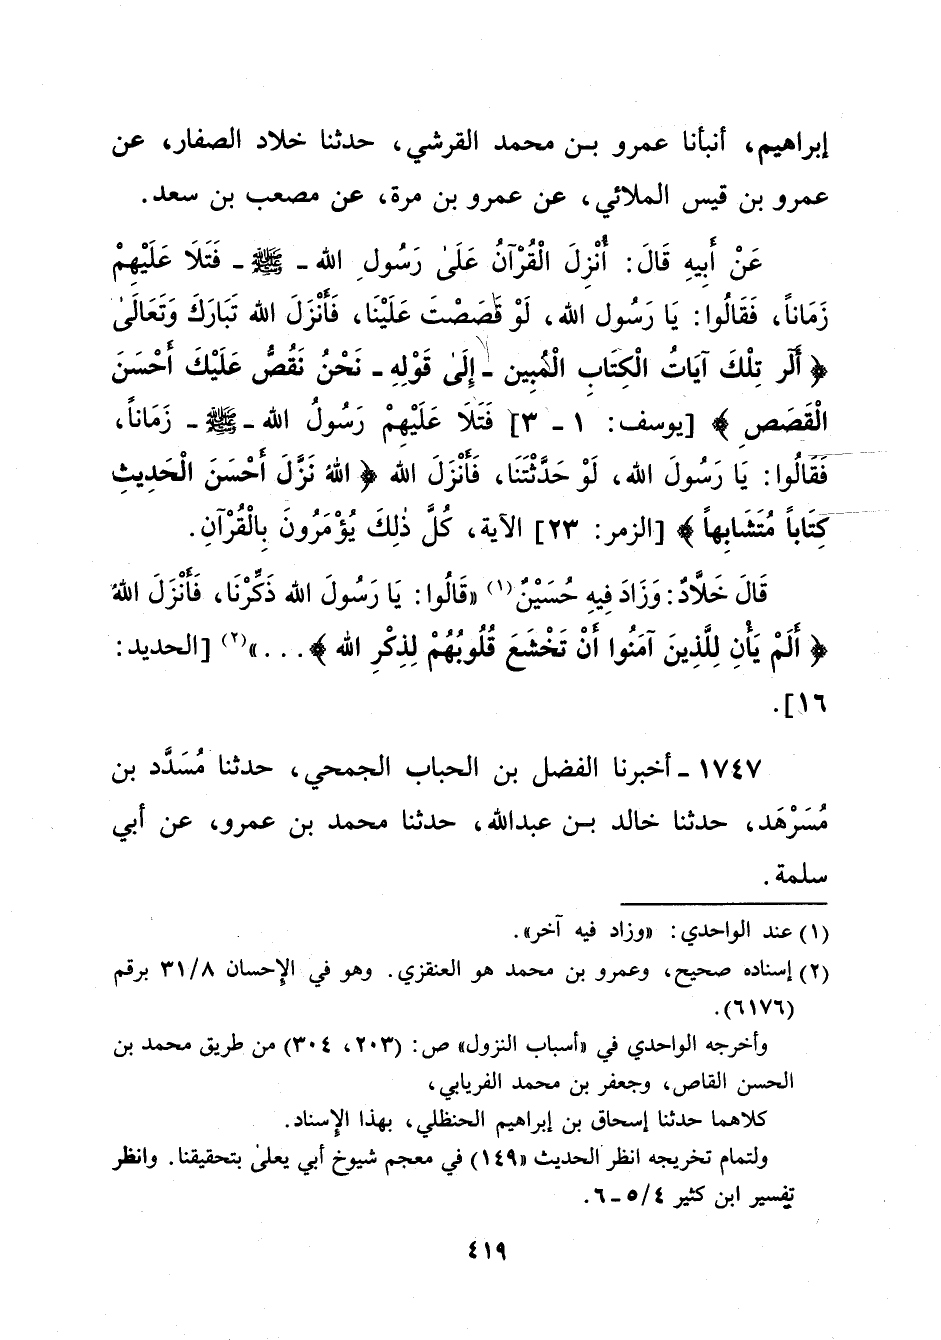 إبراهيم، أنبأنا عمرو بـن محمد القرشي، حدثنا خلاد الصفار، عن
عمرو بن قيس الملائي، عن عمرو بن مرة، عن مصعب بن سعد.
عَنْ أَبِيهِ قَالَ: أُنْزِلَ الْقُرْآنُ عَلَىٰ رَسُولِ الله ـ ﷺ ـ فَتَلَا عَلَيْهِمْ
زَمَاناً، فَقَالُوا: يَا رَسُولَ الله، لَوْ قَصَصْتَ عَلَيْنَا، فَأَنْزَلَ الله تَبَارَكَ وَتَعَالَىٰ
﴿ أَلر تِلْكَ آيَاتُ الْكِتَابِ الْمُبِين ـ إِلَىٰ قَوْلِهِ ـ نَحْنُ نَقُصُّ عَلَيْكَ أَحْسَنَ
الْقَصَصِ ﴾ [يوسف: ١ ـ ٣] فَتَلَا عَلَيْهِمْ رَسُولُ الله ـ ﷺ ـ زَمَاناً،
فَقَالُوا: يَا رَسُولَ الله، لَوْ حَدَّثْتَنَا، فَأَنْزَلَ الله ﴿ اللهُ نَزَّلَ أَحْسَنَ الْحَدِيثِ
كِتَاباً مُتَشَابِهاً ﴾ [الزمر: ٢٣] الآية، كُلَّ ذٰلِكَ يُؤْمَرُونَ بِالْقُرْآنِ.
قَالَ خَلَّادٌ: وَزَادَ فِيهِ حُسَيْنٌ (١) «قَالُوا: يَا رَسُولَ الله ذَكِّرْنَا، فَأَنْزَلَ اللهُ
﴿ أَلَمْ يَأْنِ لِلَّذِينَ آمَنُوا أَنْ تَخْشَعَ قُلُوبُهُمْ لِذِكْرِ الله ﴾...» (٢) [الحديد:
١٦].
١٧٤٧ ـ أخبرنا الفضل بن الحباب الجمحي، حدثنا مُسَدَّد بن
مُسَرْهَد، حدثنا خالد بـن عبدالله، حدثنا محمد بن عمرو، عن أبي
سلمة.
(١) عند الواحدي: «وزاد فيه آخر».
(٢) إسناده صحيح، وعمرو بن محمد هو العنقزي. وهو في الإحسان ٣١/٨ برقم
(٦١٧٦).
وأخرجه الواحدي في «أسباب النزول» ص: (٢٠٣، ٣٠٤) من طريق محمد بن
الحسن القاص، وجعفر بن محمد الفريابي،
كلاهما حدثنا إسحاق بن إبراهيم الحنظلي، بهذا الإسناد.
ولتمام تخريجه انظر الحديث «١٤٩) في معجم شيوخ أبي يعلىٰ بتحقيقنا. وانظر
تفسير ابن كثير ٥/٤ ـ ٦.
٤١٩